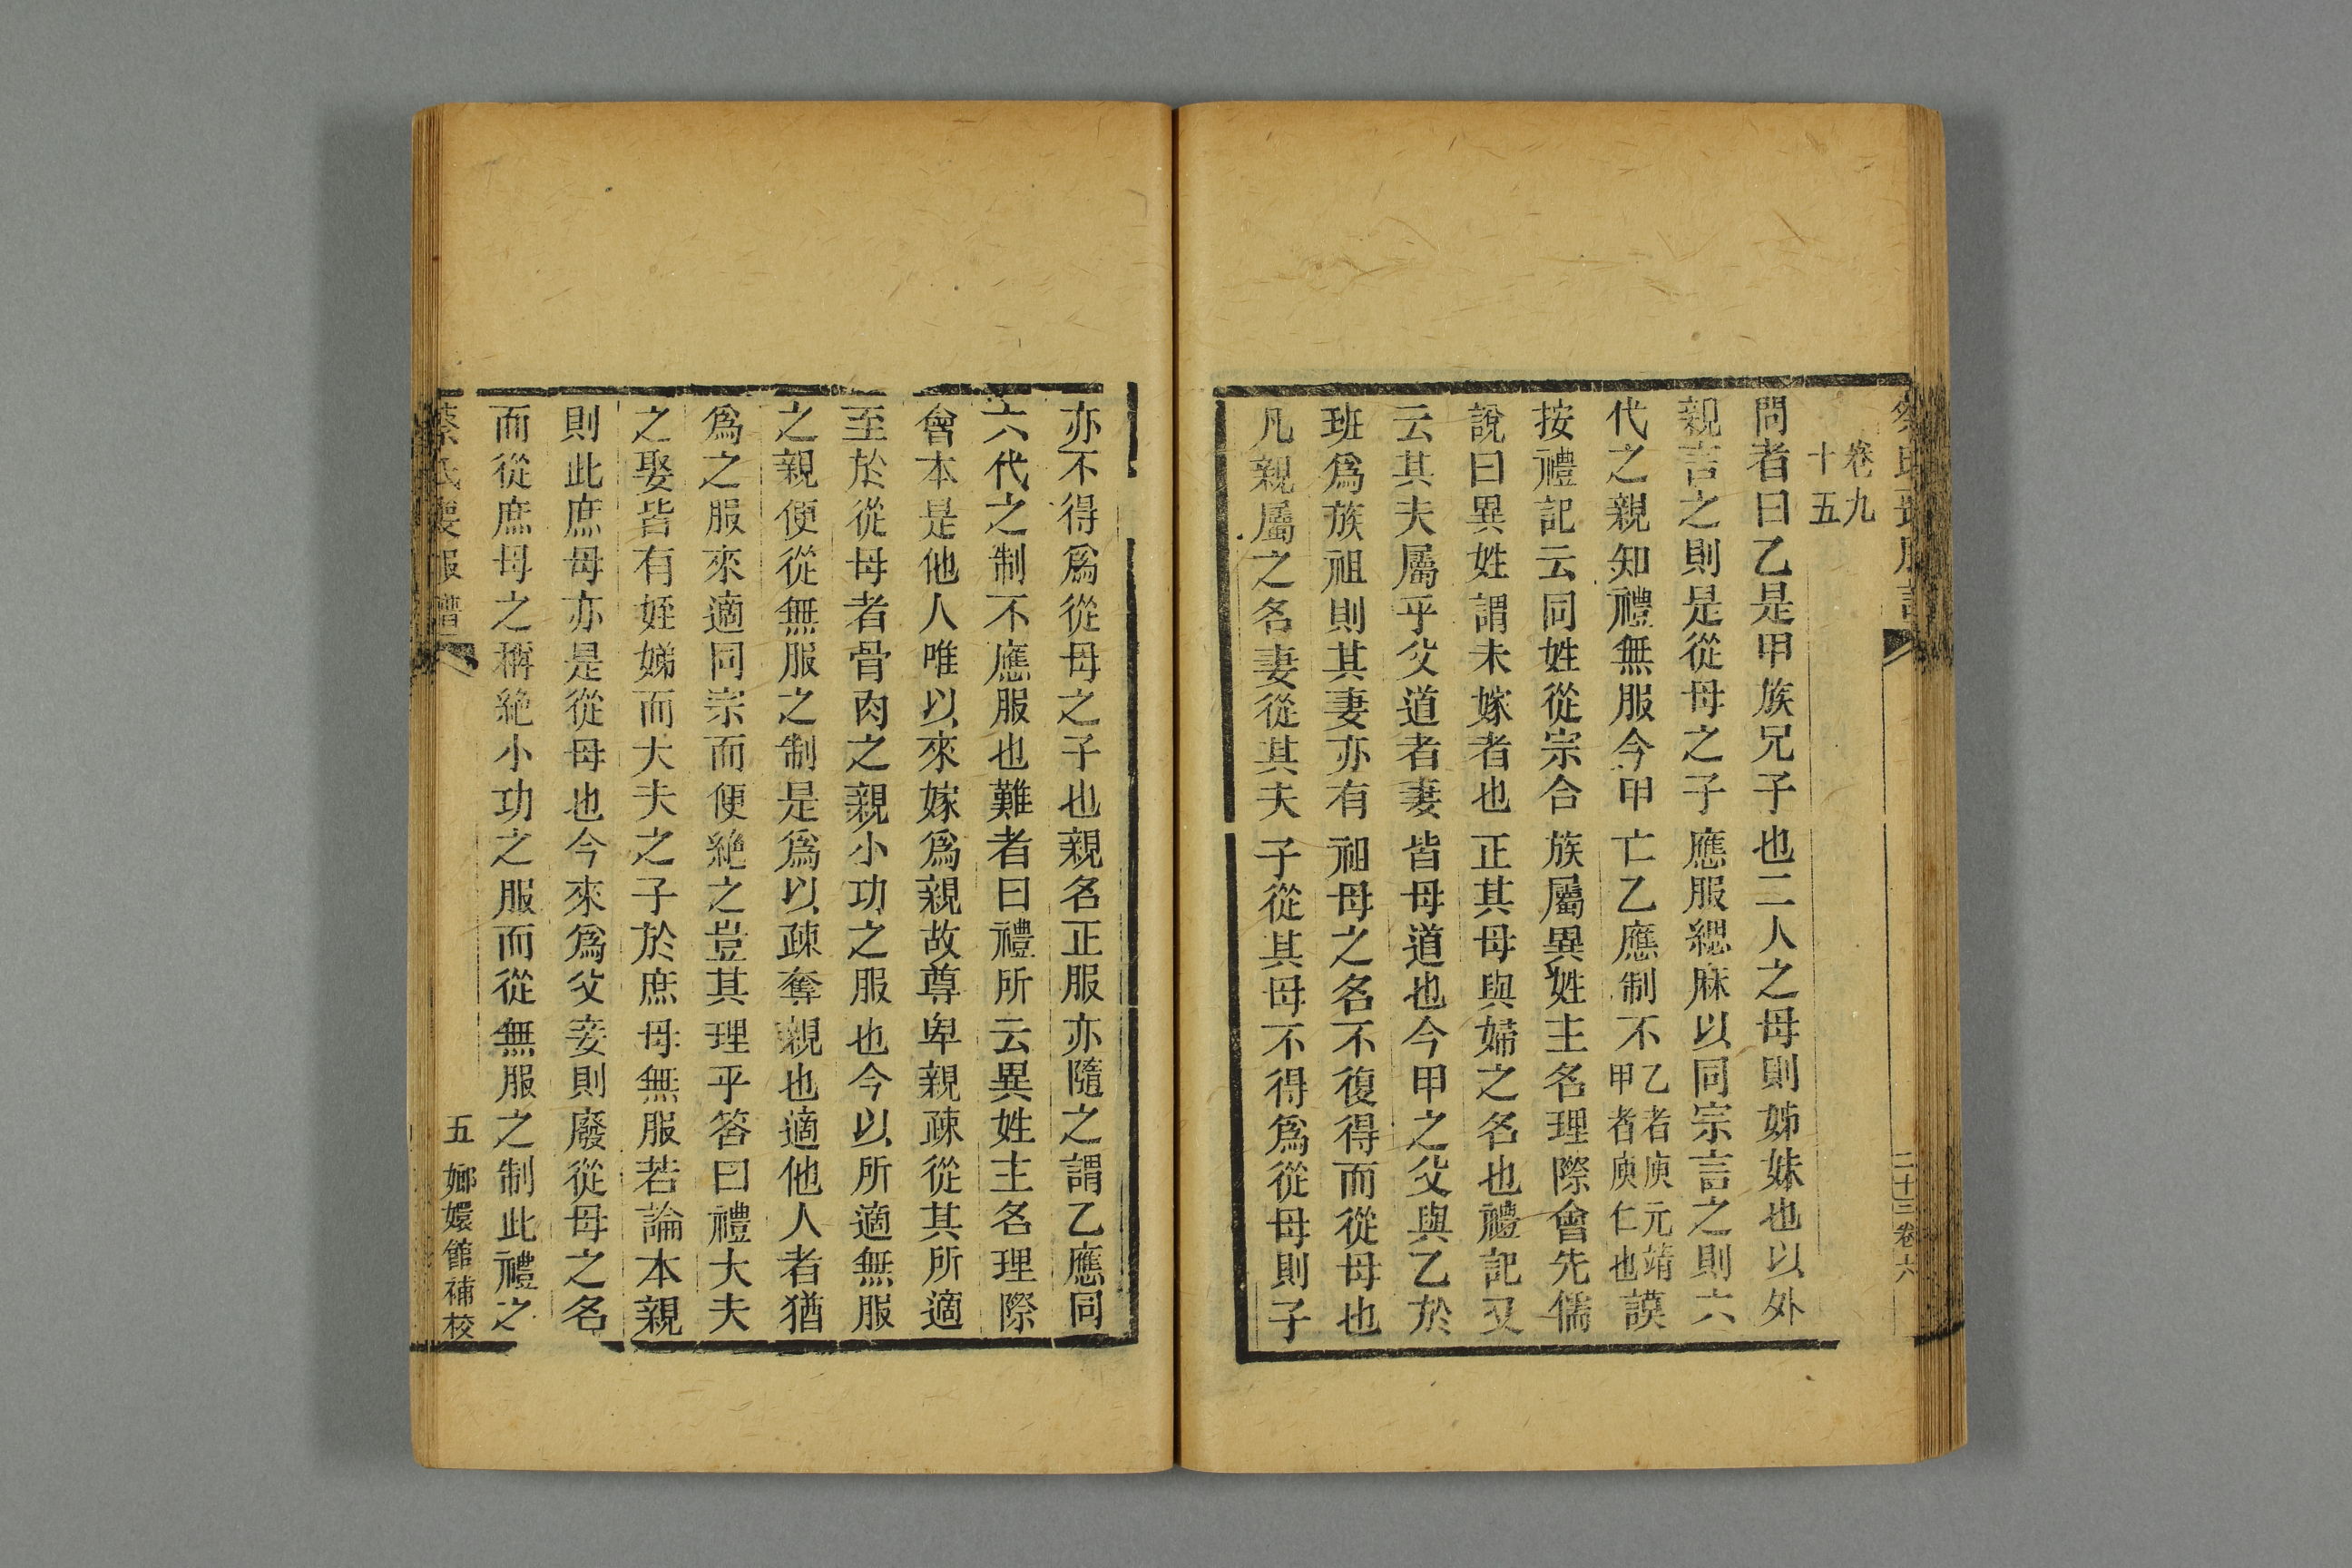 卷九
十五
問者曰乙是甲族兄子也二人之母則姊妹也以外
親言之則是從母之子應服緦麻以同宗言之則六
代之親知禮無服今甲亡乙應制不乙者庾元靖甲者庾仁也謨
按禮記云同姓從宗合族屬異姓主名理際會先儒
說曰異姓謂未嫁者也正其母與婦之名也禮記又
云其夫屬乎父道者妻皆母道也今甲之父與乙於
班爲族祖則其妻亦有祖母之名不復得而從母也
凡親屬之名妻從其夫子從其母不得爲從母則子
亦不得爲從母之子也親名正服亦隨之謂乙應同
六代之制不應服也難者曰禮所云異姓主名理際
會本是他人唯以來嫁爲親故尊卑親疎從其所適
至於從母者骨肉之親小功之服也今以所適無服
之親便從無服之制是爲以疎奪親也適他人者猶
爲之服來適同宗而便絶之豈其理乎答曰禮大夫
之娶皆有姪娣而大夫之子於庶母無服若論本親
則此庶母亦是從母也今來爲父妾則廢從母之名
而從庶母之稱絶小功之服而從無服之制此禮之
五 嫏嬛館補校